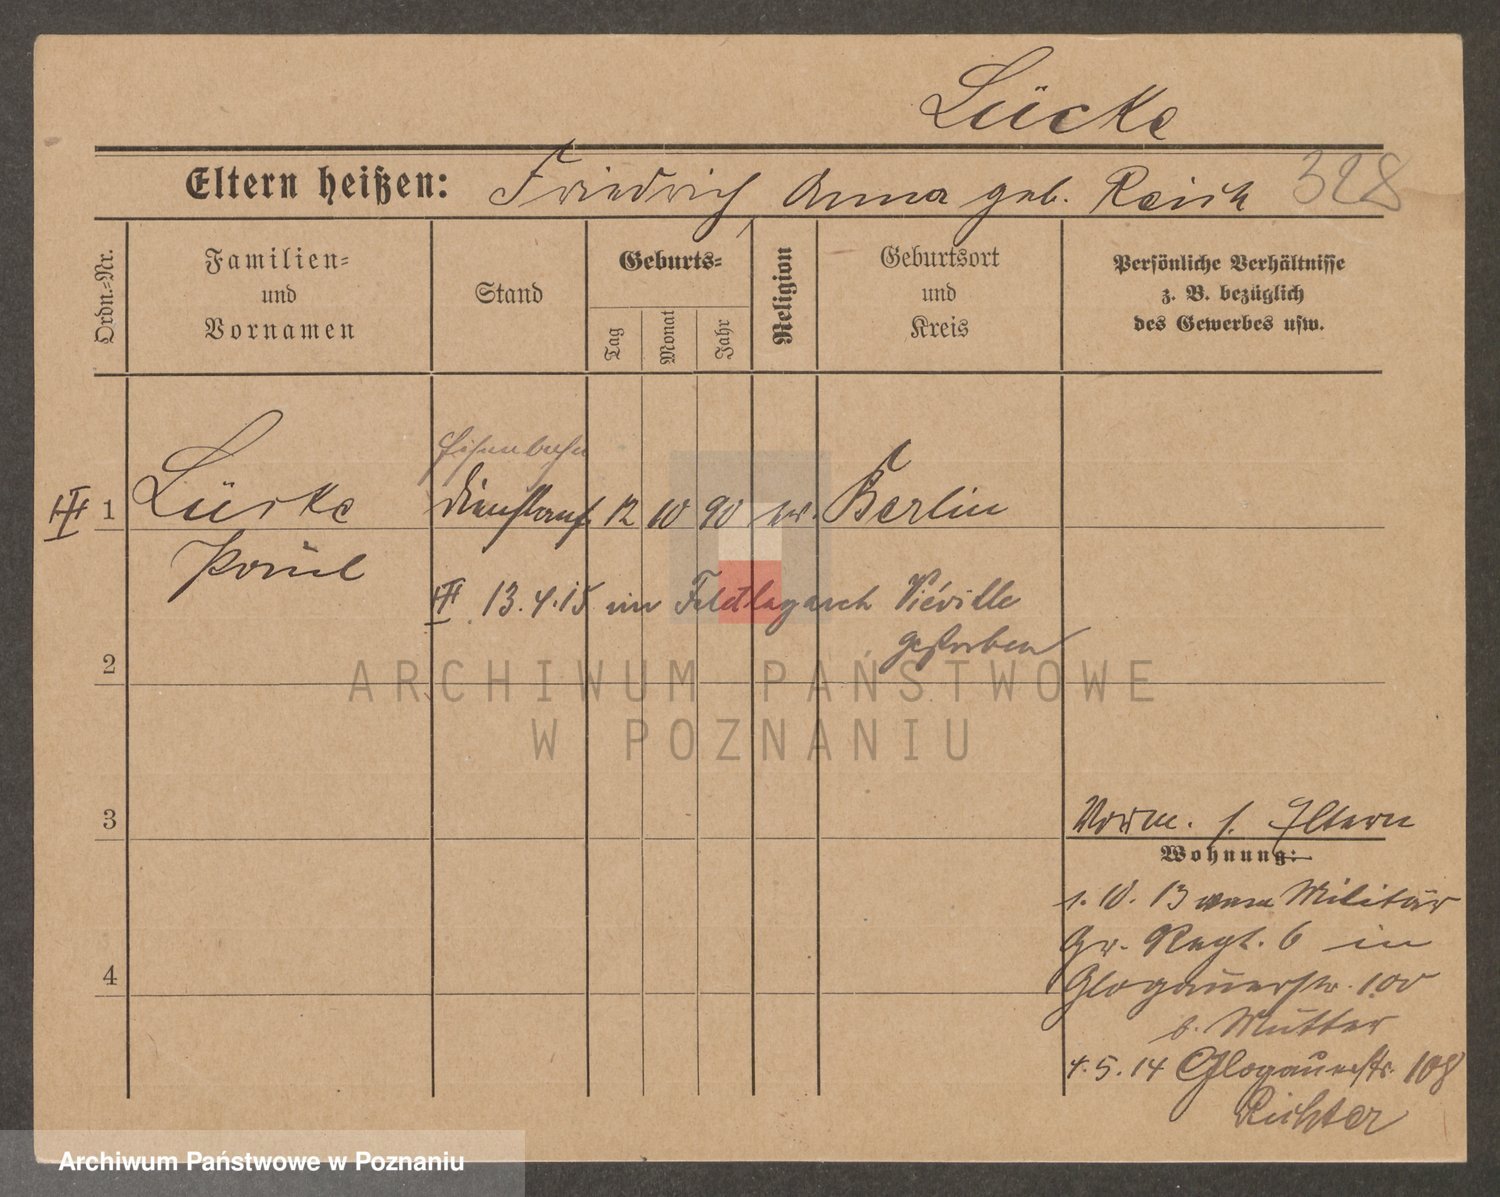 Lücke
Eltern heißen: Friedrich Anna geb. Reich 328
Ordn.-Nr.
Familien- und Vornamen
Stand
Geburts-
Tag
Monat
Jahr
Religion
Geburtsort und Kreis
Persönliche Verhältnisse
z. B. bezüglich
des Gewerbes usw.
Eisenbahn
III 1 Lücke dienstanf. 12 10 90 ev. Berlin
Paul
III 13.4.15 im Feldlazareth Viéville
gestorben
2
ARCHIWUM PAŃSTWOWE
W POZNANIU
3
Vorm. s. Eltern
Wohnung:
1. 10. 13 vom Militär
Gr. Regt. 6 in
4
Glogauerstr. 100
b. Mutter
4. 5. 14 Glogauerstr. 108
Richter
Archiwum Państwowe w Poznaniu